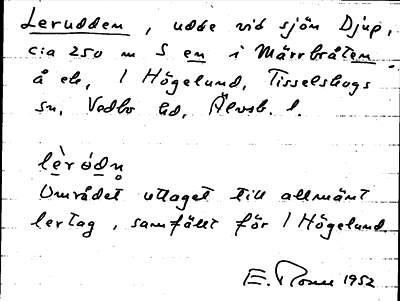 Lerudden, udde vid sjön Djup,
cia 250 m S en i Märrbråten
å ek, 1 Högelund, Tisselskogs
sn, Vedbo hd, Älvsb. l.
lèr ódn̥
Området uttaget till allmänt
lertag, samfällt för 1 Högelund.
E. 1952